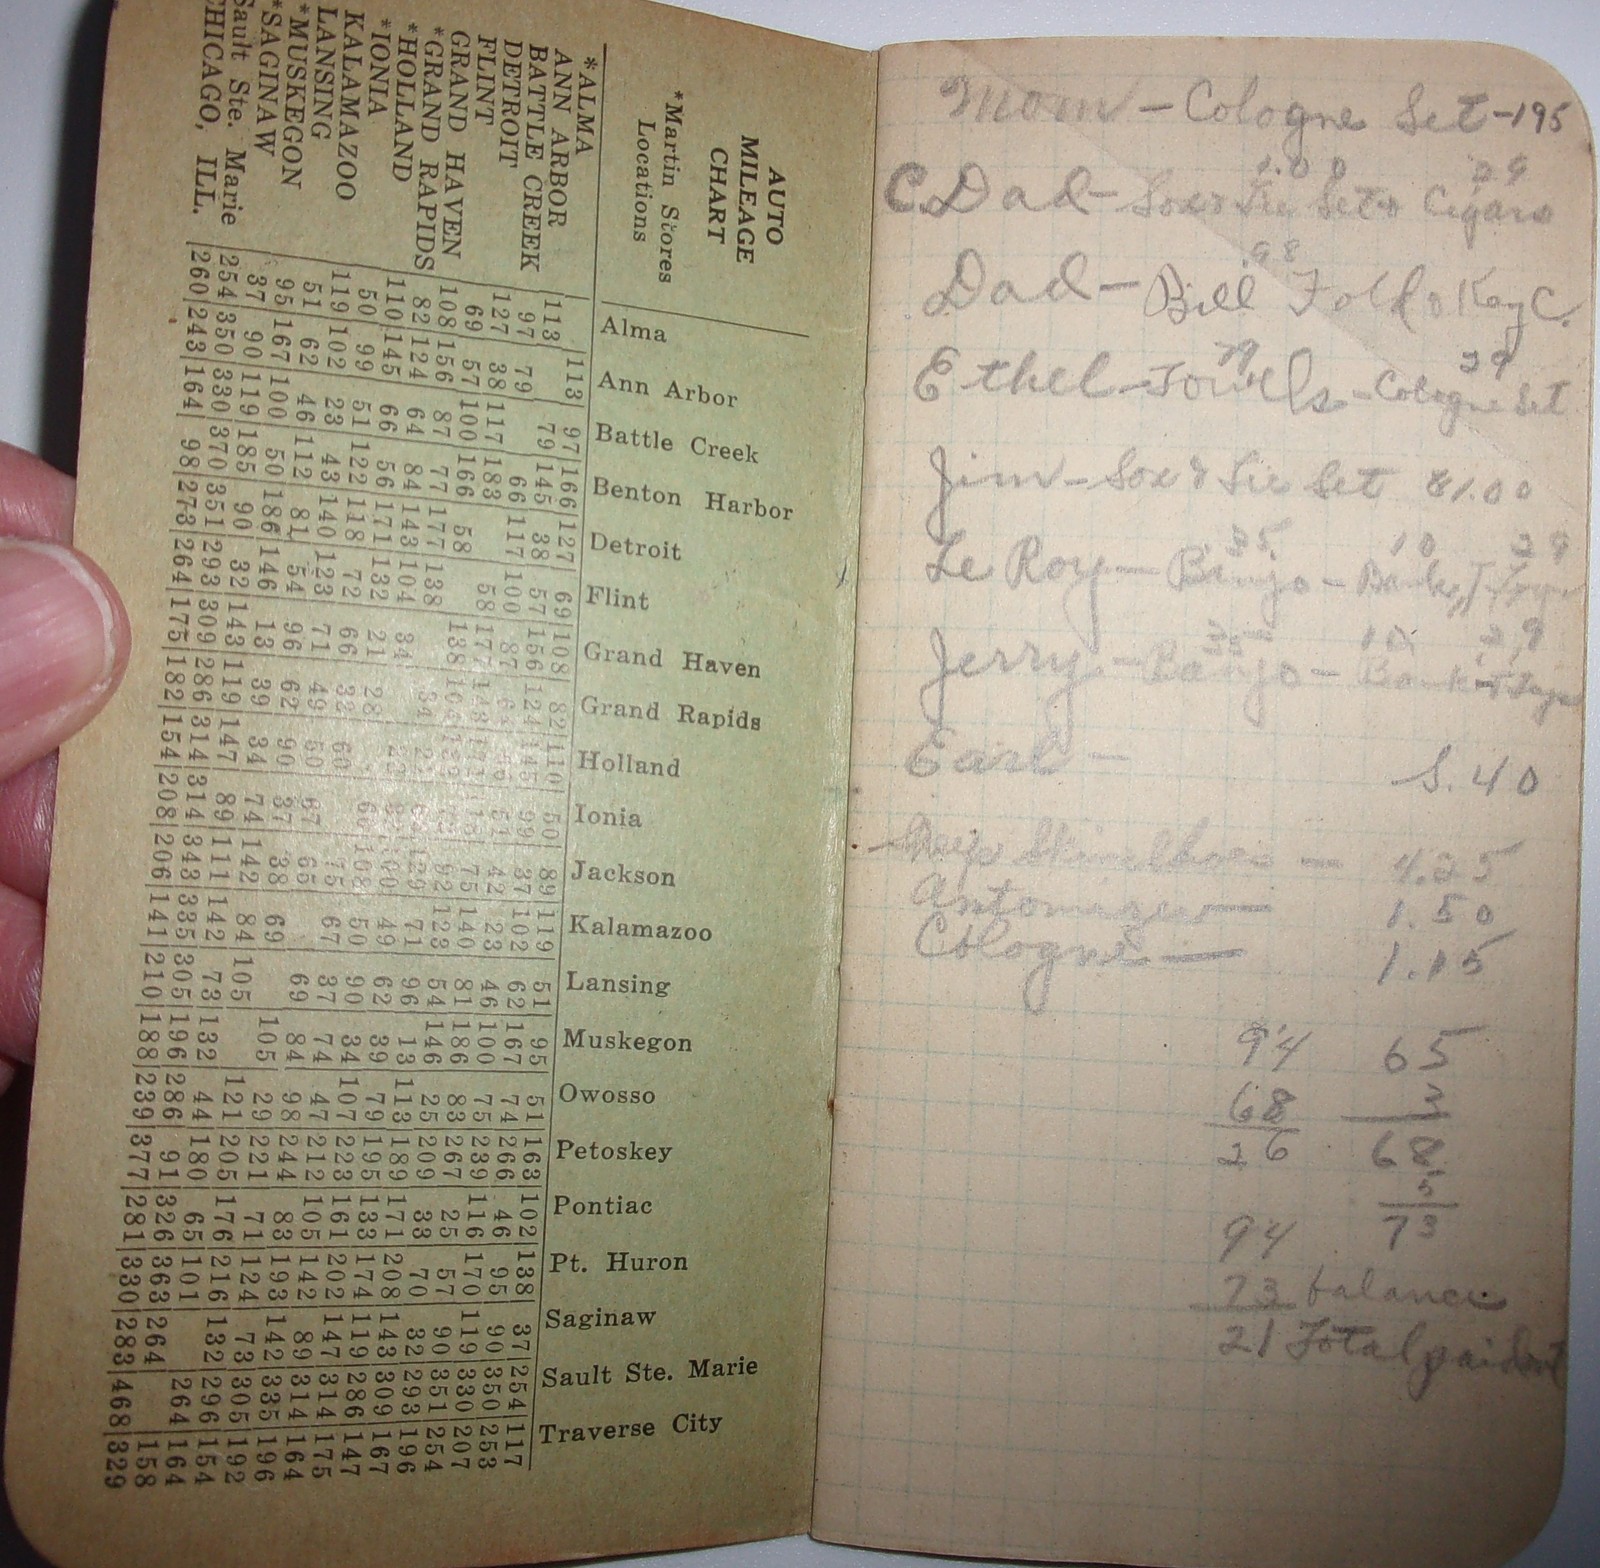 AUTO
MILEAGE
CHART
*Martin Stores
Locations
Alma
Ann Arbor
Battle Creek
Benton Harbor
Detroit
Flint
Grand Haven
Grand Rapids
Holland
Ionia
Jackson
Kalamazoo
Lansing
Muskegon
Owosso
Petoskey
Pontiac
Pt. Huron
Saginaw
Sault Ste. Marie
Traverse City
*ALMA 113 97 166 127 69 108 82 110 50 89 119 51 95 51 163 102 138 37 254 117
ANN ARBOR 113 79 145 38 57 156 124 145 99 37 102 62 167 74 266 46 95 90 350 253
BATTLE CREEK 97 79 66 117 100 87 64 66 51 42 23 46 100 75 239 116 170 119 330 207
DETROIT 127 38 117 183 58 177 143 171 118 75 140 81 186 83 267 25 57 90 351 254
FLINT 69 57 100 166 58 138 104 132 72 92 123 54 146 25 209 33 70 32 293 196
GRAND HAVEN 108 156 87 77 177 138 34 21 66 129 71 96 13 113 189 171 208 143 309 167
*GRAND RAPIDS 82 124 64 84 143 104 34 28 32 49 62 39 79 195 133 174 119 286 147
*HOLLAND 110 145 66 56 171 132 21 28 60 108 50 90 34 107 223 161 202 147 314 175
*IONIA 50 99 51 122 118 72 66 32 60 75 67 37 74 47 212 105 142 89 314 164
KALAMAZOO 119 102 23 43 140 123 71 49 50 67 65 69 84 98 244 83 193 142 335 196
LANSING 51 62 46 112 81 54 96 62 90 37 38 69 105 29 221 71 124 73 305 192
*MUSKEGON 95 167 100 50 186 146 13 39 34 74 142 84 105 121 205 176 216 132 296 154
*SAGINAW 37 90 119 185 90 32 143 119 147 89 111 142 73 132 44 180 65 101 264 164
Sault Ste. Marie 254 350 330 370 351 293 309 286 314 314 343 335 305 196 286 91 326 363 264 158
CHICAGO, ILL. 260 243 164 98 273 264 175 182 154 208 206 141 210 188 239 377 281 330 283 468 329
Mom - Cologne Set - 195
1.00 29
C. Dad - Sox & Tie Set & Cigars
.98
Dad - Bill Fold & Key C.
79 39
Ethel - Towels - Cologne Set
Jim - Sox & Tie Set $1.00
35 10 29
Le Roy - Banjo - Bank
35 10 29
Jerry - Banjo - Bank
Earl - 5.40
4.25
1.50
Cologne - 1.15
94 65
68 3
26 68
5
94 73
73 balance
21 Total paid out